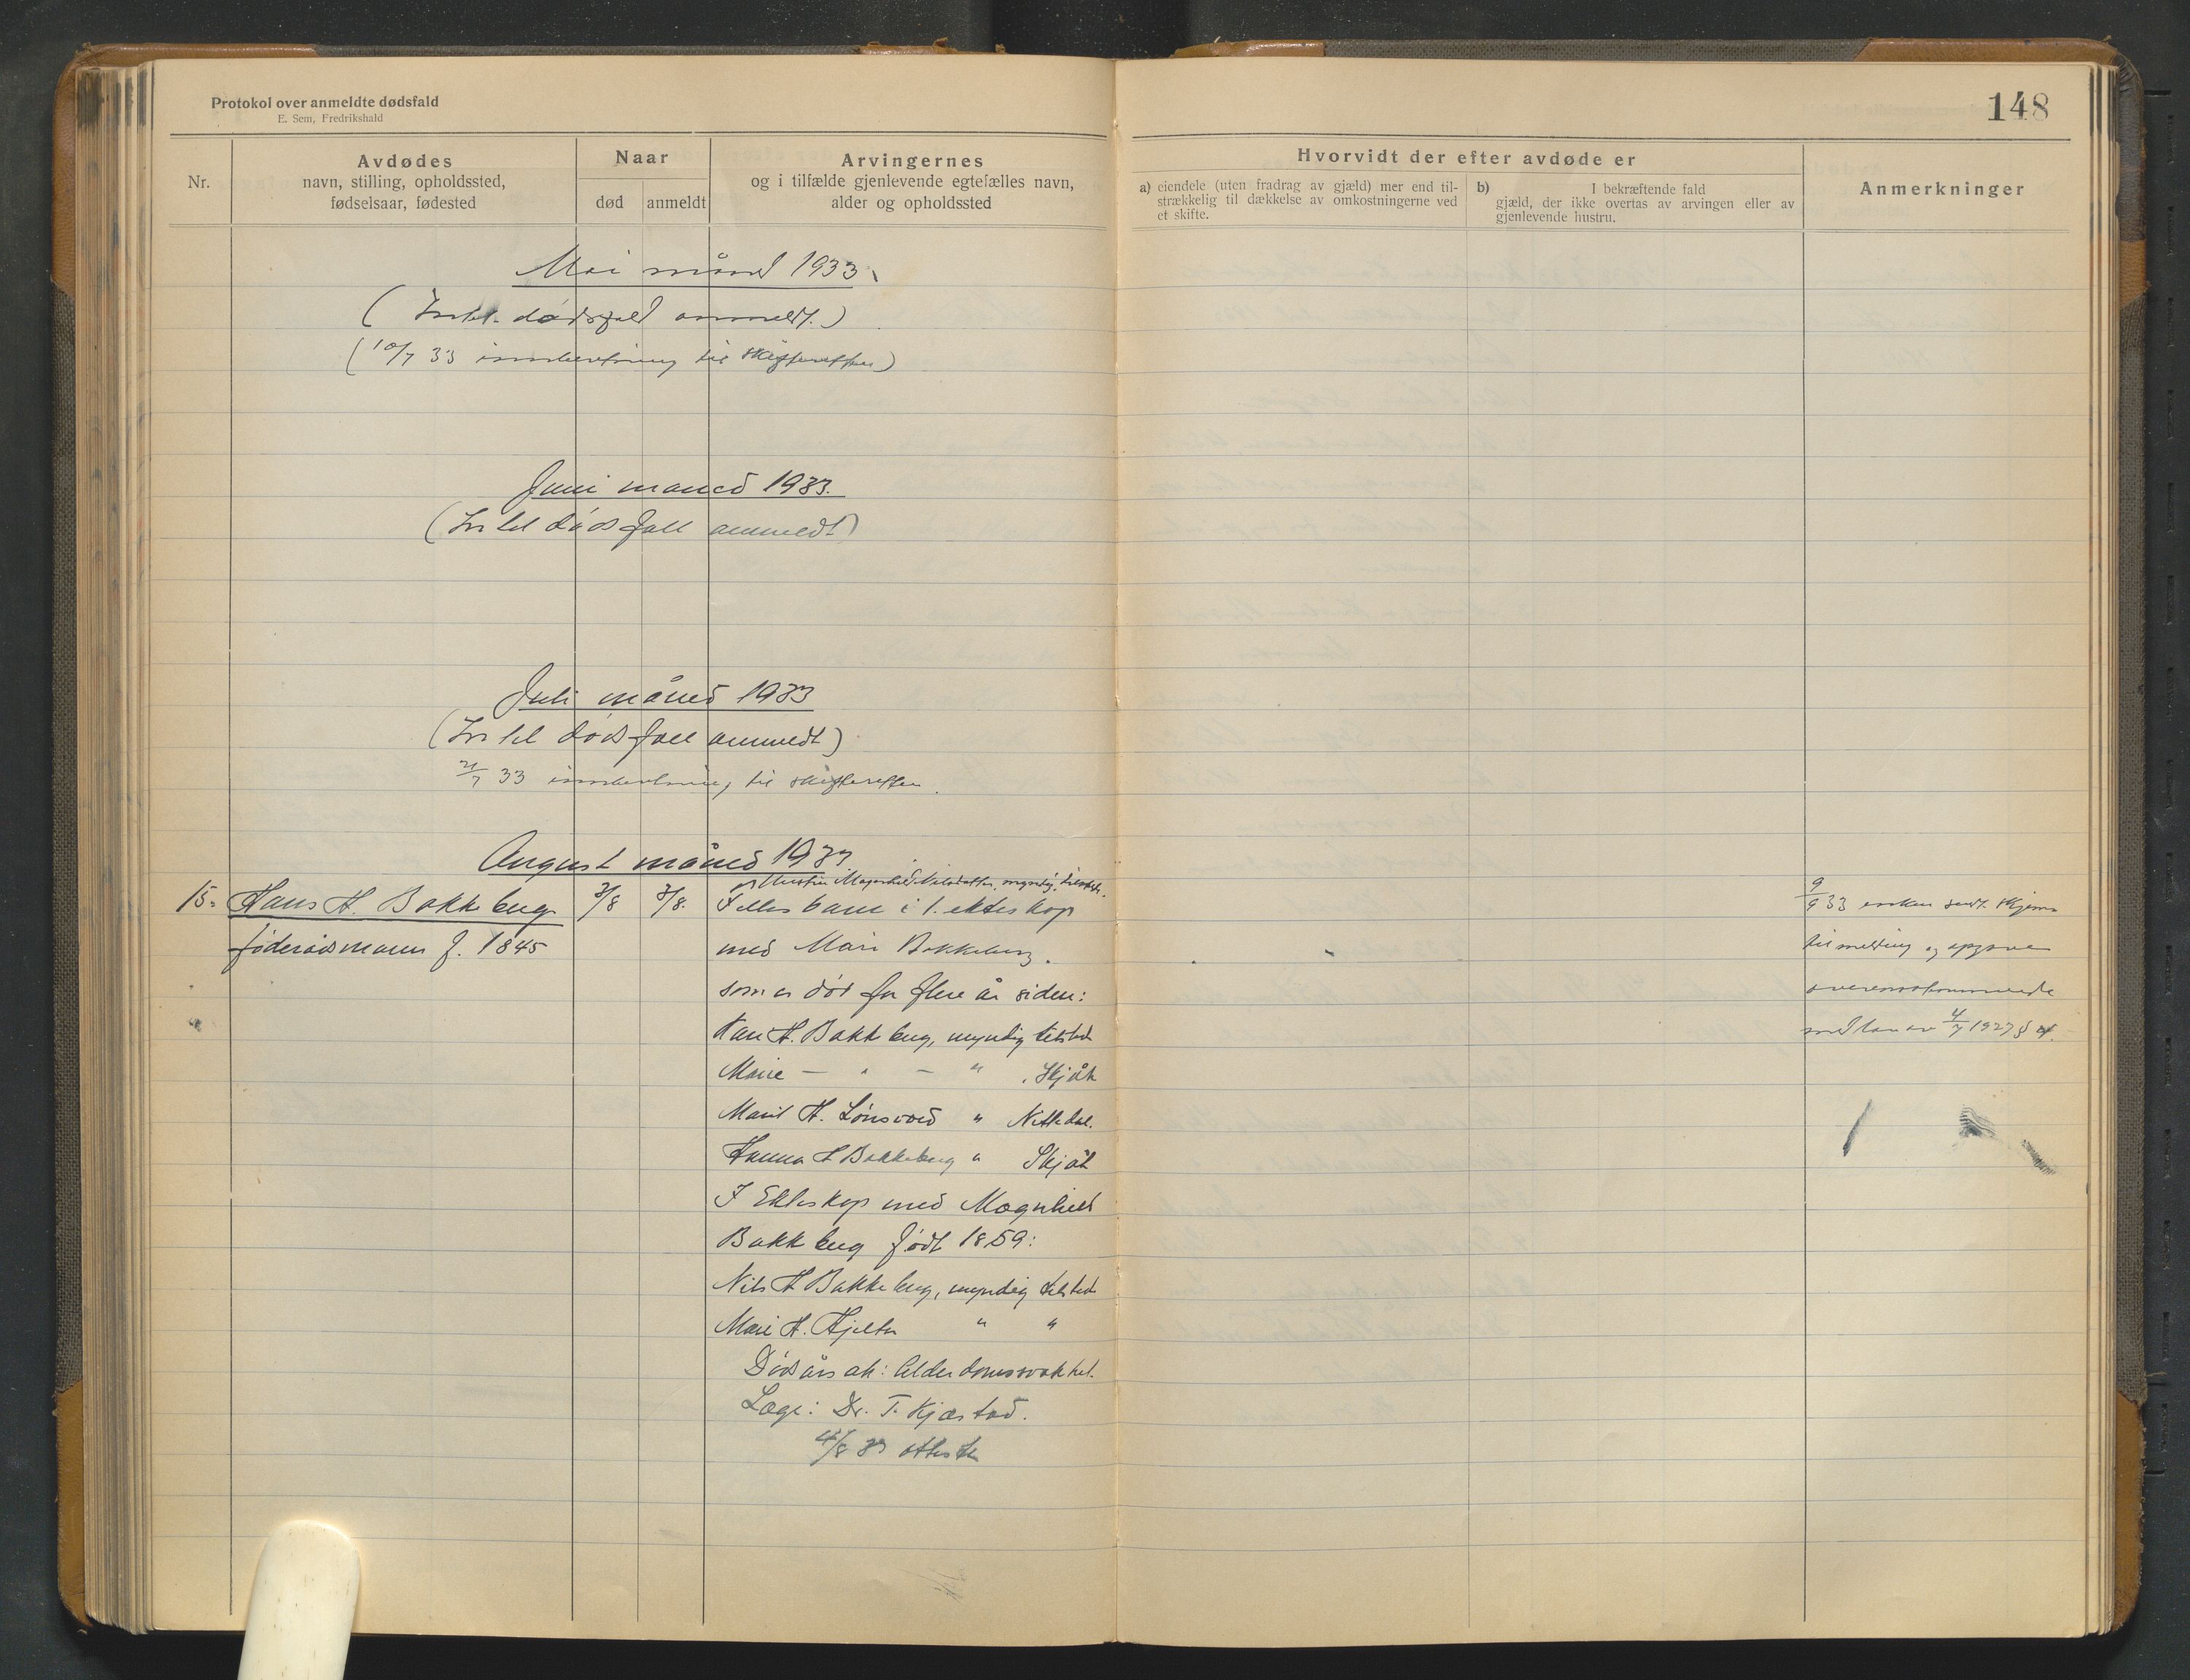 Protokol over anmeldte dødsfald
E. Sem, Fredrikshald
148
Nr.
Avdødes
navn, stilling, opholdssted,
fødselsaar, fødested
Naar
død
anmeldt
Arvingernes
og i tilfælde gjenlevende egtefælles navn,
alder og opholdssted
Hvorvidt der efter avdøde er
a) eiendele (uten fradrag av gjæld) mer end til-
strækkelig til dækkelse av omkostningerne ved
et skifte.
b) I bekræftende fald
gjæld, der ikke overtas av arvingen eller av
gjenlevende hustru.
Anmerkninger
Mai månd 1933
(Intet dødsfald anmeldt.)
(10/7 33 innberetning til skifteretten)
Juni maned 1933.
(Intet dødsfall anmeldt)
Juli måned 1933
(Intet dødsfall anmeldt)
33 innberetning til skifteretten.
August måned 1933
15. Hans H. Bakkberg 3/8 3/8.
føderådsmann f. 1845
Hustru Magnhild Nilsdatter, myndig, tilstede.
Felles barn i 1. ekteskap
med Mari Bakkeberg.
som er død for flere år siden:
Kari H. Bakkberg, myndig tilsted
Marie — " — " . Skjåk
Marit H. Lønsvad " Nittedal.
Hanna H Bakkeberg " Skjåk
I Ekteskap med Magnhild
Bakkberg født 1859:
Nils H Bakkeberg, myndig tilsted
Mari H. Hjelter " "
Dødsårsak: Alderdomssvakhet.
Læge: Dr. T. Kjæstad.
4/8 33 attest
9/9 33 enken sendt skjema
til melding og opgave
overensstemmende
med lov av 4/7 1927 §